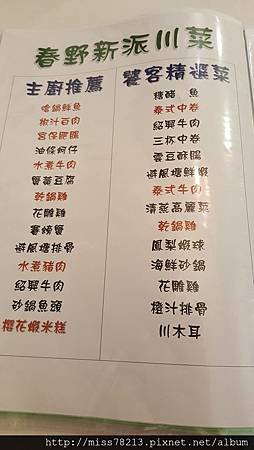 春野新派川菜
主廚推薦
嗆鍋鮮魚
椒汁百肉
宮保肥腸
油條蚵仔
水煮牛肉
蟹黃豆腐
乾鍋雞
花雕雞
賽螃蟹
避風塘排骨
水煮豬肉
紹興牛肉
砂鍋魚頭
櫻花蝦米糕
饕客精選菜
糖醋 魚
泰式中卷
紹興牛肉
三杯中卷
避風塘鮮蝦
泰式牛肉
清蒸高麗菜
乾鍋雞
鳳梨蝦球
海鮮砂鍋
花雕雞
橙汁排骨
川木耳
http://miss78213.pixnet.net/album